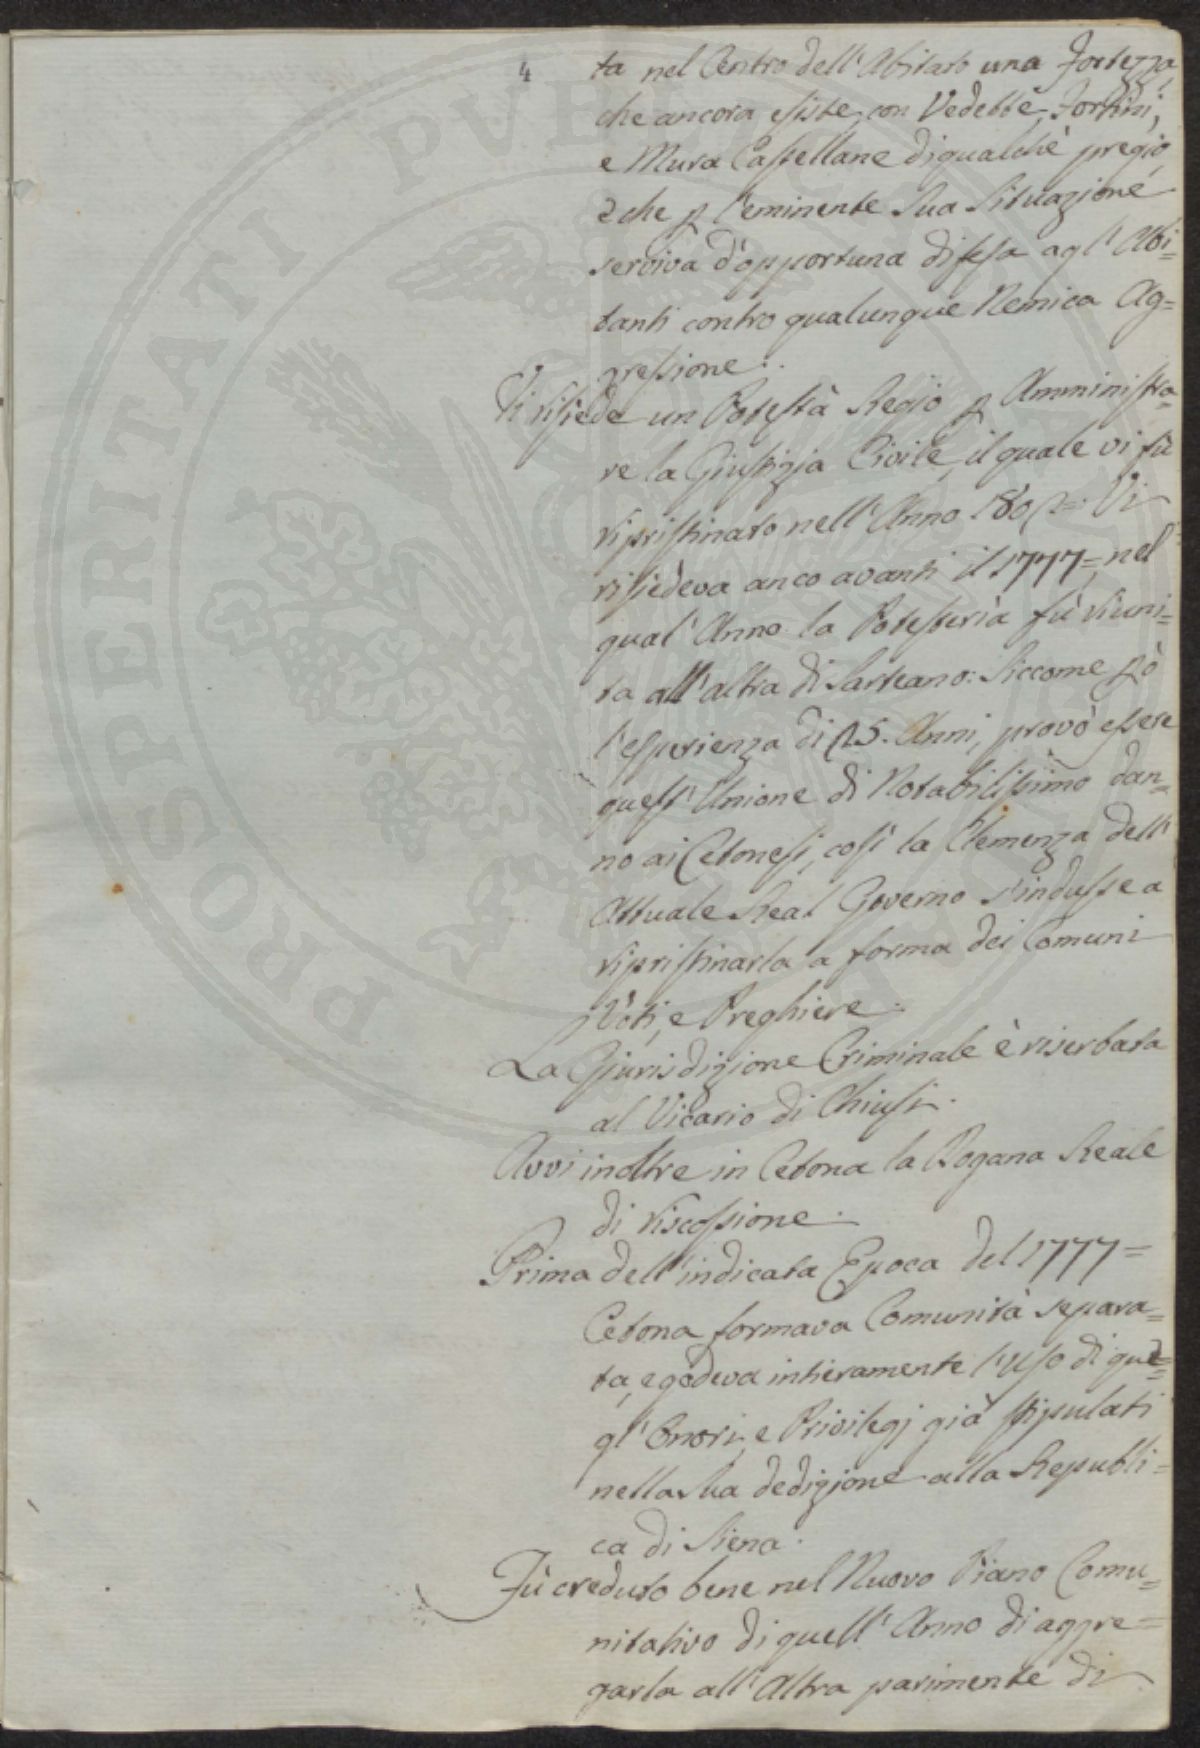 4
ta nel Centro dell' Abitato una Fortezza
che ancora esiste, con Vedette, Fortini,
e Mura Castellane di qualchè pregio,
e che p l'eminente Sua Situazione
serviva d'opportuna difesa agl' Abi=
tanti contro qualunque Nemica Ag=
gressione.
Vi risiede un Potestà Regio p Amministra=
re la Giustizia Civile, il quale vi fù
ripristinato nell' Anno 1802=. Vi
risiedeva anco avanti il 1777=, nel
qual' Anno la Potesteria fù riuni=
ta all' altra di Sarteano: Siccome pò
l'esperienza di 25. Anni, provò essere
quest' Unione di Notabilissimo dan=
no ai Cetonesi, così la Clemenza dell'
Attuale Real Governo s'indusse a
ripristinarla a forma dei Comuni
Vòti, e Preghiere.
La Giurisdizione Criminale è riserbata
al Vicario di Chiusi.
Avvi inoltre in Cetona la Dogana Reale
di riscossione.
Prima dell' indicata Epoca del 1777=
Cetona formava Comunità separa=
ta, e godeva intieramente l'Uso di que=
gl' Onori, e Privilegj già stipulati
nella Sua dedizione alla Republi=
ca di Siena.
Fù creduto bene nel Nuovo Piano Comu=
nitativo di quell' Anno di aggre=
garla all' Altra parimente di
PROSPERITATI PVBLICAE